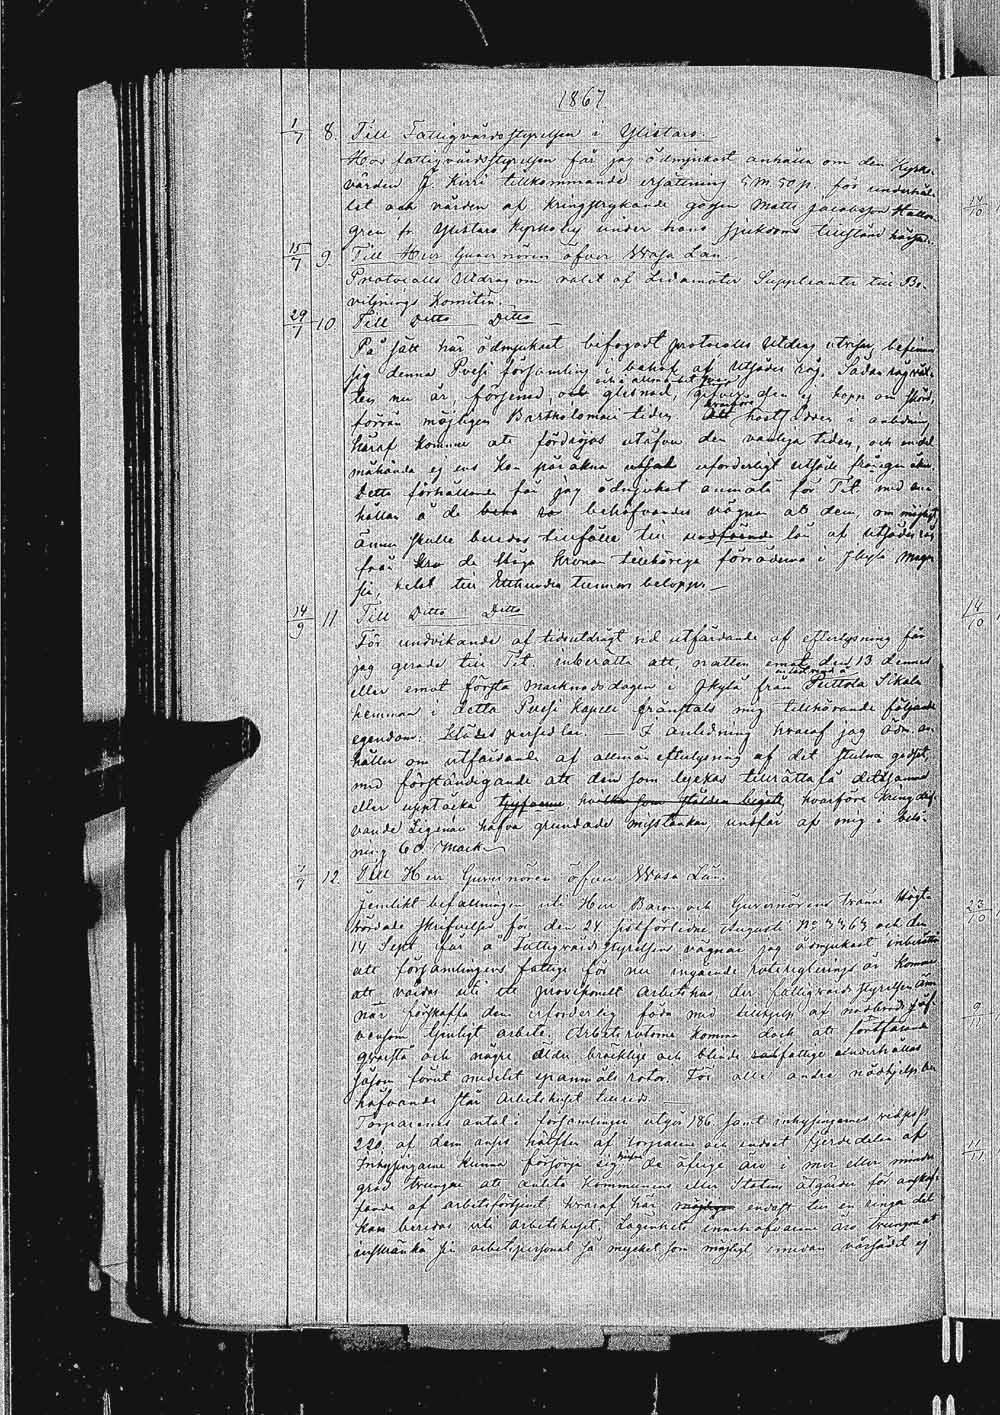 1867.
1/7 8. Till Fattigvårdsstyrelsen i Ylistaro.
Hos fattigvårdsstyrelsen får jag ödmjukast anhålla om den Kyrko-
värden J. Kirri tillkommande ersättning 5 m. 50 p. för underhål-
let och vården af kringstrykande gossen Matts Jacobsson
gren fr. Ylistaro Kyrkoby under hans sjukdoms tillstånd härst.
15/7 9. Till Herr Guvernören öfver Wasa Län.
Protocolls Utdrag om valet af Ledamöter Suppleanter till Be-
vilnings Komitén.
29/7 10. Till Ditto Ditto
På sätt här ödmjukast bifogadt protocolls Utdrag utvisar befinner
sig denna Pvesi församling i behof af utsädes råg. Sådan rågväx-
ten nu är, försenad, och glesnad, gifver den ej hopp om skörd
förrän möjligen Bartholomei tiden hvarföre höstsådden i anledning
häraf kommer att fördröjas utöfver den vanliga tiden, och en del
måhända ej ens kan påräkna erforderligt utsäde från egen åker.
Detta förhållande får jag ödmjukast anmäla för Tit. med an-
hållan å de behöfvandes vägnar att dem, om möjligt
ännu skulle beredas tillfälle till lån af utsädes råg
från de Höga Kronan tillhöriga förråderna i Jkyla maga-
sin, helst till Etthundra tunnors belopp. —
14/9 11. Till Ditto Ditto
För undvikande af tidsutdrägt vid utfärdande af efterlysning får
jag gerade till Tit. inberätta att, natten emot den 13 dennes
eller emot första marknadsdagen i Jkylä från Puttola Sikala
hemman i detta Pvesi kapell frånstals mig tillhörande följande
egendom: Klädes persedlar. — I anledning hvaraf jag ödm. an-
håller om utfärdande af allmän efterlysning af det stulna godset,
med förständigande att den som lyckas tillrättafå detsamma
eller upptäcka tjufvarne hvilka som stölden begått, hvarföre kringdrif-
vande Zigenare hafva grundade misstankar, undfår af mig i belö-
ning 60 Mark.
12. Till Herr Guvernören öfver Wasa Län.
Jemlikt befallningen uti Herr Baron och Guvernörens tvänne Högt-
vördade skrifvelser för den 24 sistförlidne Augusti No 3463 och den
14 Sept får å Fattigvårdsstyrelsens vägnar jag ödmjukast inberätta
att församlingens fattige för nu ingående roteregleringsår komma
att vårdas uti ett provisionelt arbetshus, der fattigvårdsstyrelsen äm-
nar förskaffa dem erforderlig föda med tillhjelp af nödbröd jäf-
vensom tjenligt arbete. Arbetsrotorne komma dock att fortfarande
qvarstå och några äldre bräcklige och blinde fattige underhållas
såsom förut medelst spannmåls rotor. För alla andra nödhjelps be-
höfvande står Arbetshuset tillreds. —
Torparenes antal i församlingen utgör 186 samt inhysingarnes
220 af dem anses hälften af torparne och endast fjerdedelen af
Inhysingarne kunna försörja sig, de öfrige äro i mer eller mindre
grad tvungne att anlita kommunens eller Statens åtgärder för anskaf-
fande af arbetsförtjenst hvaraf här endast till en ringa del
kan beredas uti arbetshuset. Lägenhets innehafvarene äro tvungna att
inskränka sin arbetspersonal så mycket som möjligt, emedan ej